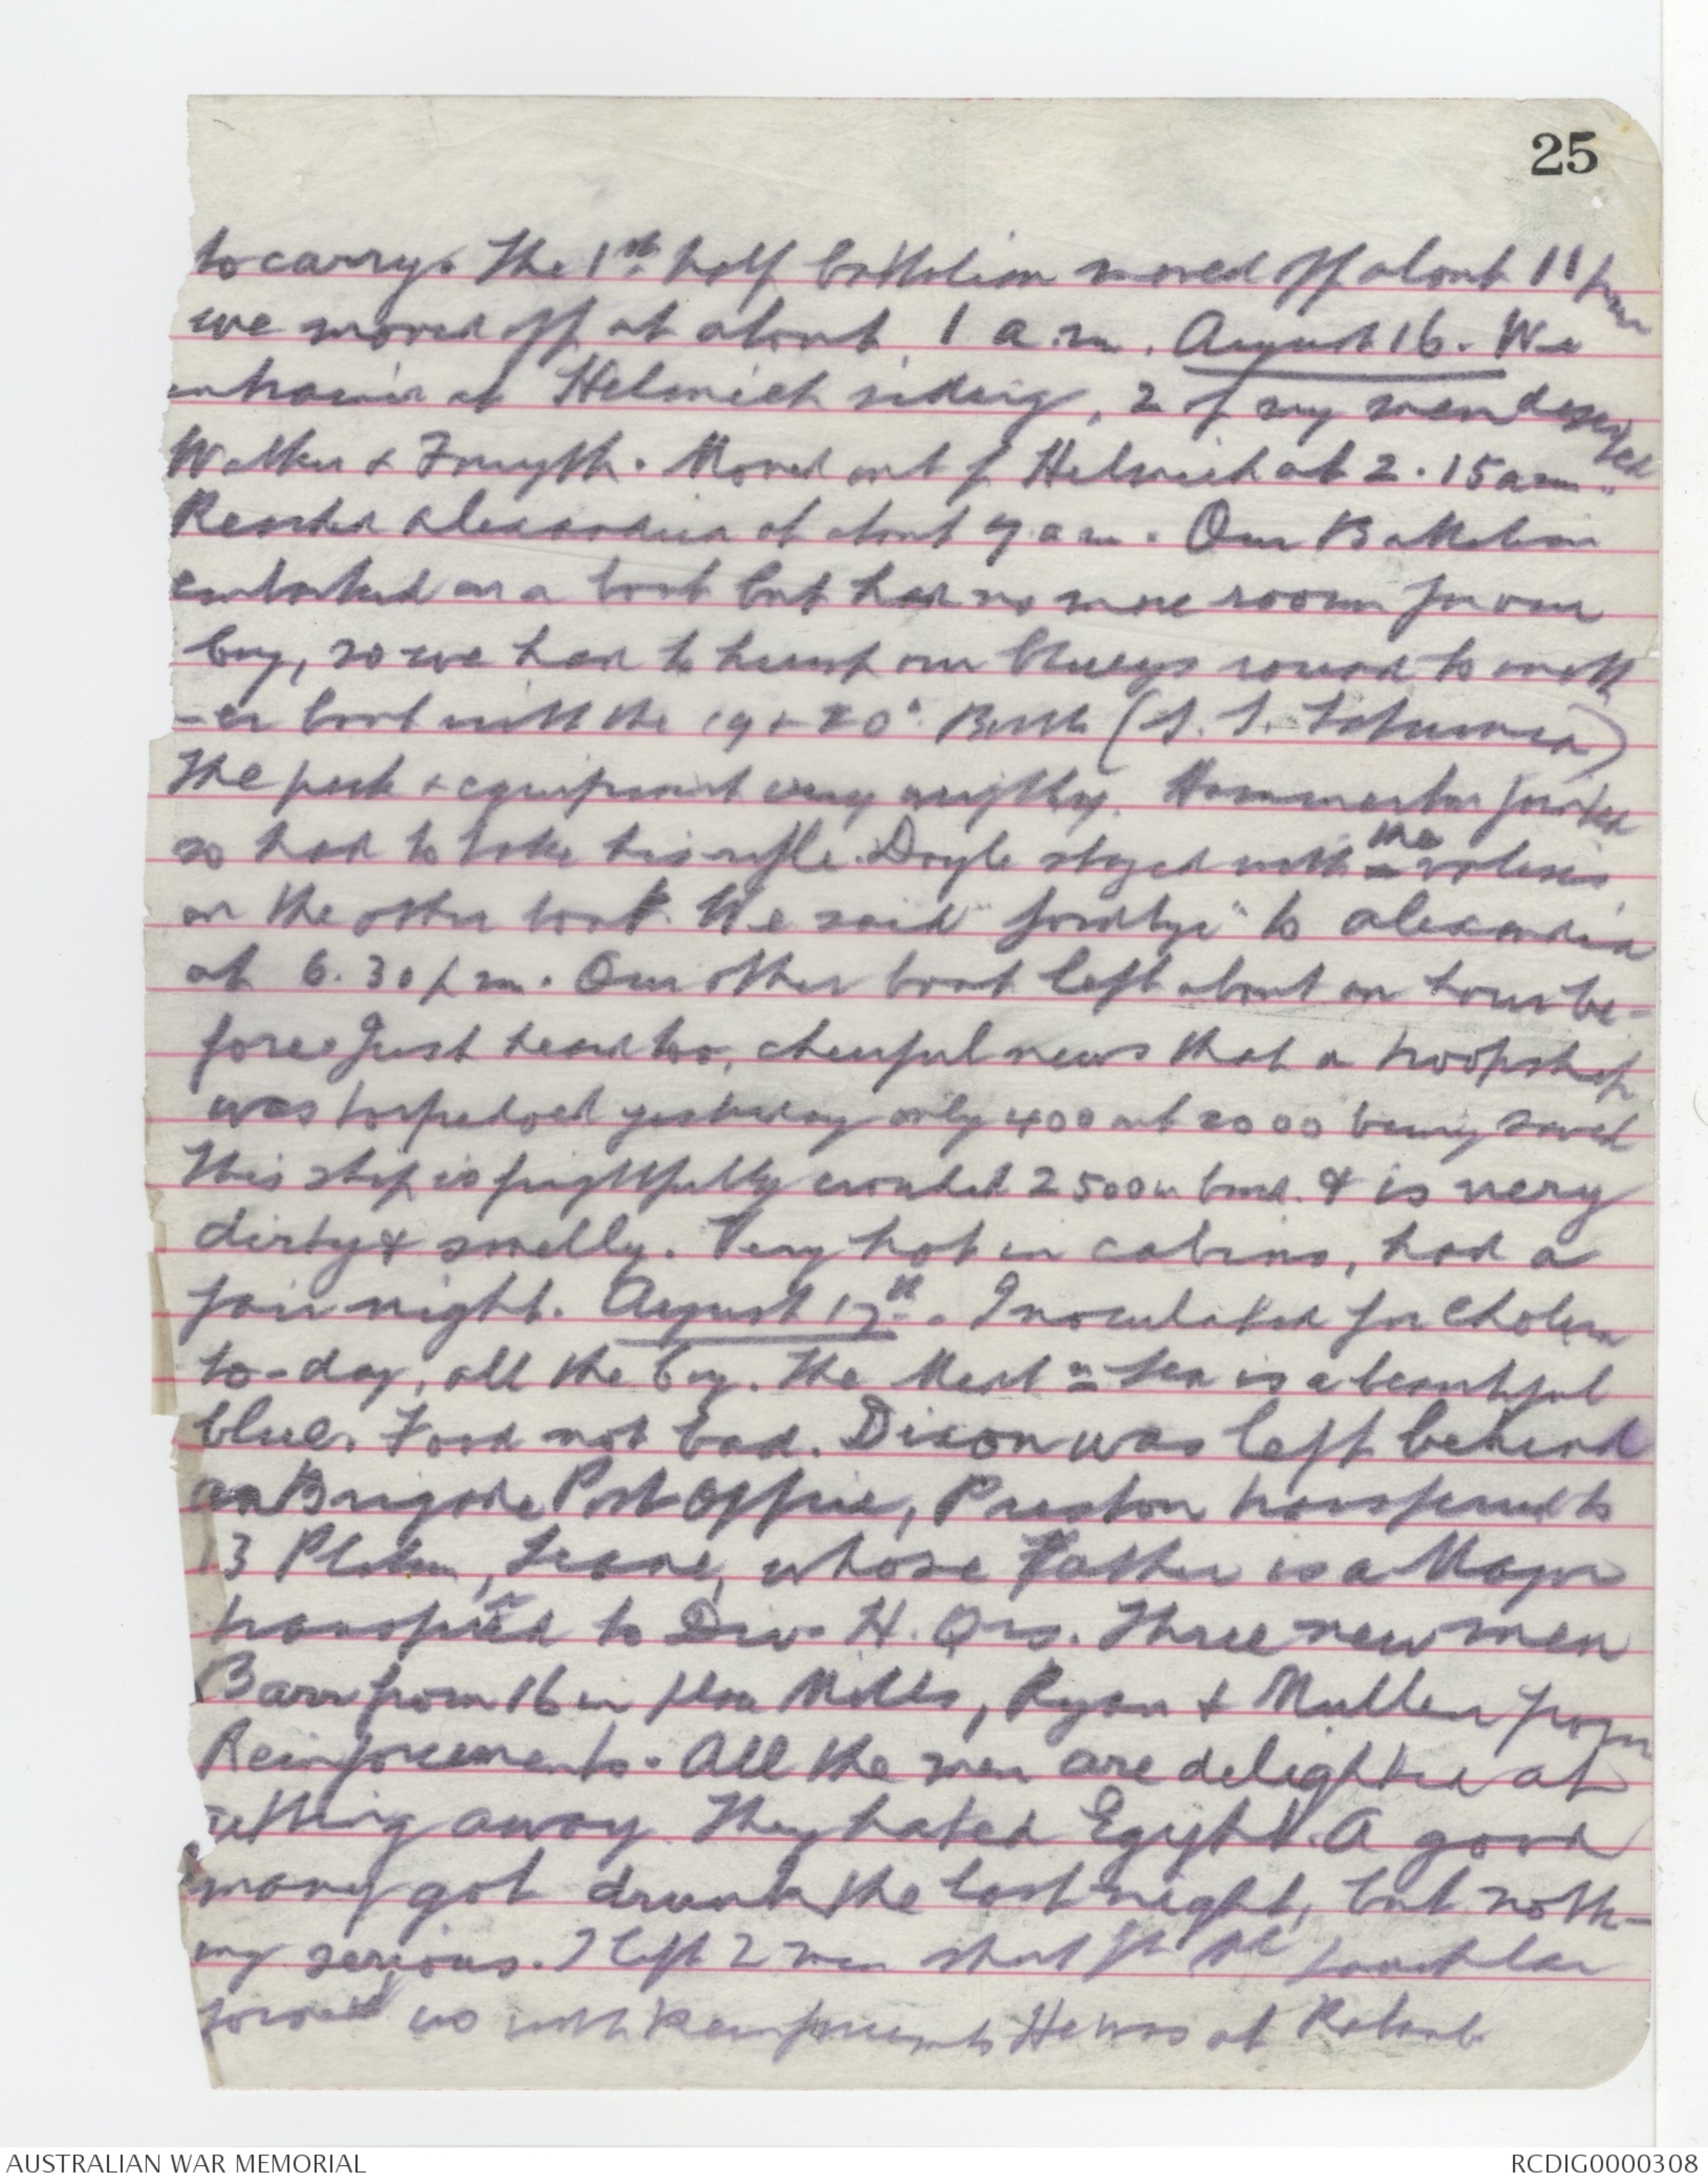 25
to carry. The 1st half battalion moved off about 11 pm
we moved off at about 1 a.m. August 16. We
entrain at Helmieh siding, 2 of my men deserted
Walker & Forsyth. Moved out of Helmieh at 2.15 am.
Reached Alexandria at about 7 am. Our Battalion
embarked on a boat but had no more room for our
Coy, so we had to hump our blueys round to anoth
-er boat with the 19 & 20th Battn (S.S.
The pack & equipment very weighty. fainted
so had to take his rifle. Doyle stayed with the valises
on the other boat. We said "goodbye" to Alexandria
at 6.30 p.m. Our other boat left about an hour be-
fore. Just heard too, cheerful news that a troopship
was torpedoed yesterday only 400 out 2000 being saved
This ship is frightfully crowded 2500 on board. & is very
dirty & smelly. Very hot in cabins, had a
fair night. August 17th. Inoculated for Cholera
to-day, all the Coy. The Medtn Sea is a beautiful
blue. Food not bad. Dixon was left behind
as Brigade Post Office, Preston transferred to
13 Platoon, Leane, whose Father is a Major
transferred to Div. H. Qrs. Three new men
Barr from 16 in Mills, Ryan & Mullen from
Reinforcements. All the men are delighted at
getting away. They hated Egypt. A good
many got drunk the last night, but noth-
ing serious. I left 2 men short
us with Reinforcements He was at
AUSTRALIAN WAR MEMORIAL
RCDIG0000308